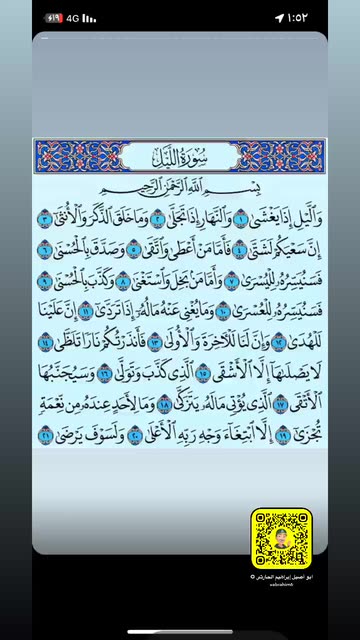 ١:٥٢
4G
١٩
سُورَةُ اللَّيْلِ
بِسْمِ اللَّهِ الرَّحْمَٰنِ الرَّحِيمِ
وَالَّيْلِ إِذَا يَغْشَىٰ ١ وَالنَّهَارِ إِذَا تَجَلَّىٰ ٢ وَمَا خَلَقَ الذَّكَرَ وَالْأُنثَىٰ ٣
إِنَّ سَعْيَكُمْ لَشَتَّىٰ ٤ فَأَمَّا مَنْ أَعْطَىٰ وَاتَّقَىٰ ٥ وَصَدَّقَ بِالْحُسْنَىٰ ٦
فَسَنُيَسِّرُهُ لِلْيُسْرَىٰ ٧ وَأَمَّا مَنْ بَخِلَ وَاسْتَغْنَىٰ ٨ وَكَذَّبَ بِالْحُسْنَىٰ ٩
فَسَنُيَسِّرُهُ لِلْعُسْرَىٰ ١٠ وَمَا يُغْنِي عَنْهُ مَالُهُ إِذَا تَرَدَّىٰ ١١ إِنَّ عَلَيْنَا
لَلْهُدَىٰ ١٢ وَإِنَّ لَنَا لَلْآخِرَةَ وَالْأُولَىٰ ١٣ فَأَنذَرْتُكُمْ نَارًا تَلَظَّىٰ ١٤
لَا يَصْلَاهَا إِلَّا الْأَشْقَى ١٥ الَّذِي كَذَّبَ وَتَوَلَّىٰ ١٦ وَسَيُجَنَّبُهَا
الْأَتْقَى ١٧ الَّذِي يُؤْتِي مَالَهُ يَتَزَكَّىٰ ١٨ وَمَا لِأَحَدٍ عِندَهُ مِن نِّعْمَةٍ
تُجْزَىٰ ١٩ إِلَّا ابْتِغَاءَ وَجْهِ رَبِّهِ الْأَعْلَىٰ ٢٠ وَلَسَوْفَ يَرْضَىٰ ٢١
ابو اصيل إبراهيم